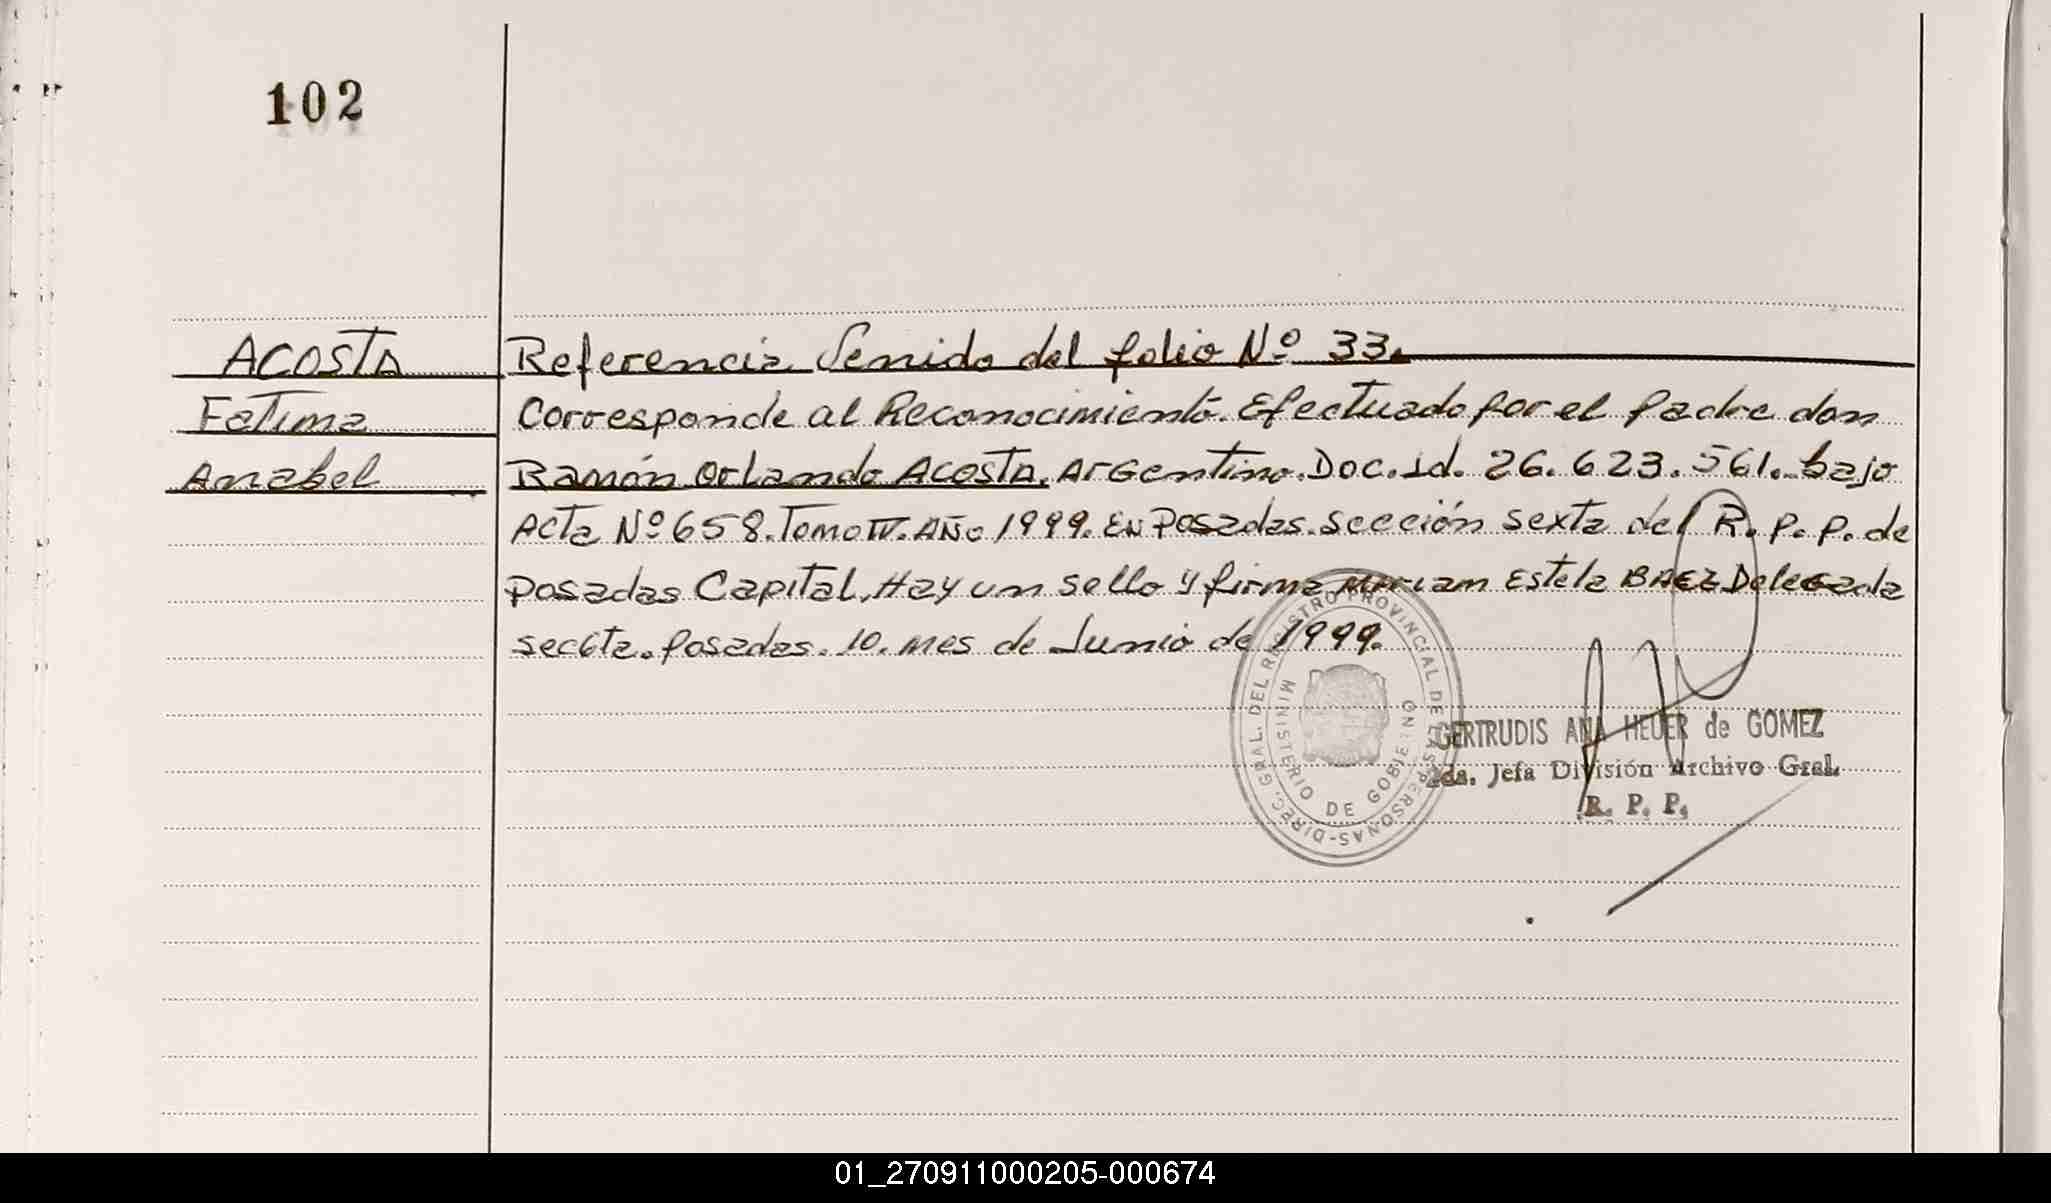 102
ACOSTA
Fatima
Anabel
Referencia Venido del folio Nº 33.
Corresponde al Reconocimiento. Efectuado por el padre don
Ramón Orlando ACOSTA. Argentino. Doc. id. 26.623.561. bajo
Acta Nº 658. Tomo IV. Año 1999. EN Posadas. Sección sexta del R.P.P. de
Posadas Capital. Hay un sello y firma Myriam Estela BAEZ Delegada
sec 6ta. Posadas. 10. mes de Junio de 1999.
DIREC. GRAL. DEL REGISTRO PROVINCIAL DE LAS PERSONAS-
MINISTERIO DE GOBIERNO
GERTRUDIS ANA HEUER de GOMEZ
2da. Jefa División Archivo Gral.
R. P. P.
01_270911000205-000674